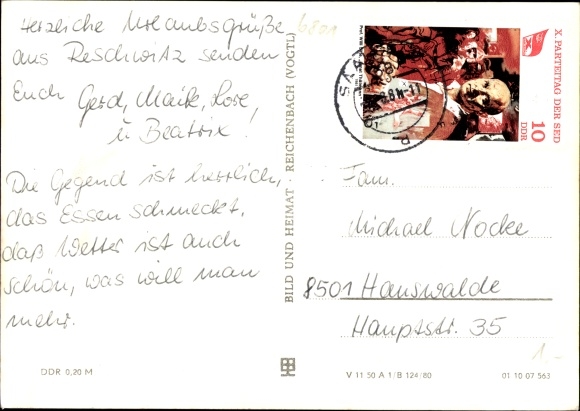 Herzliche Urlaubsgrüße
aus Reschwitz senden
Euch Gerd, Maike, Lore,
u Beatrix!
Die Gegend ist herrlich,
das Essen schmeckt,
daß Wetter ist auch
schön, was will man
mehr.
DDR 0,20 M
BILD UND HEIMAT · REICHENBACH (VOGTL)
6801
X. PARTEITAG DER SED
10
DDR
Fam.
Michael Nocke
8501 Hauswalde
Hauptstr. 35
1,-
V 11 50 A 1/B 124/80
01 10 07 563